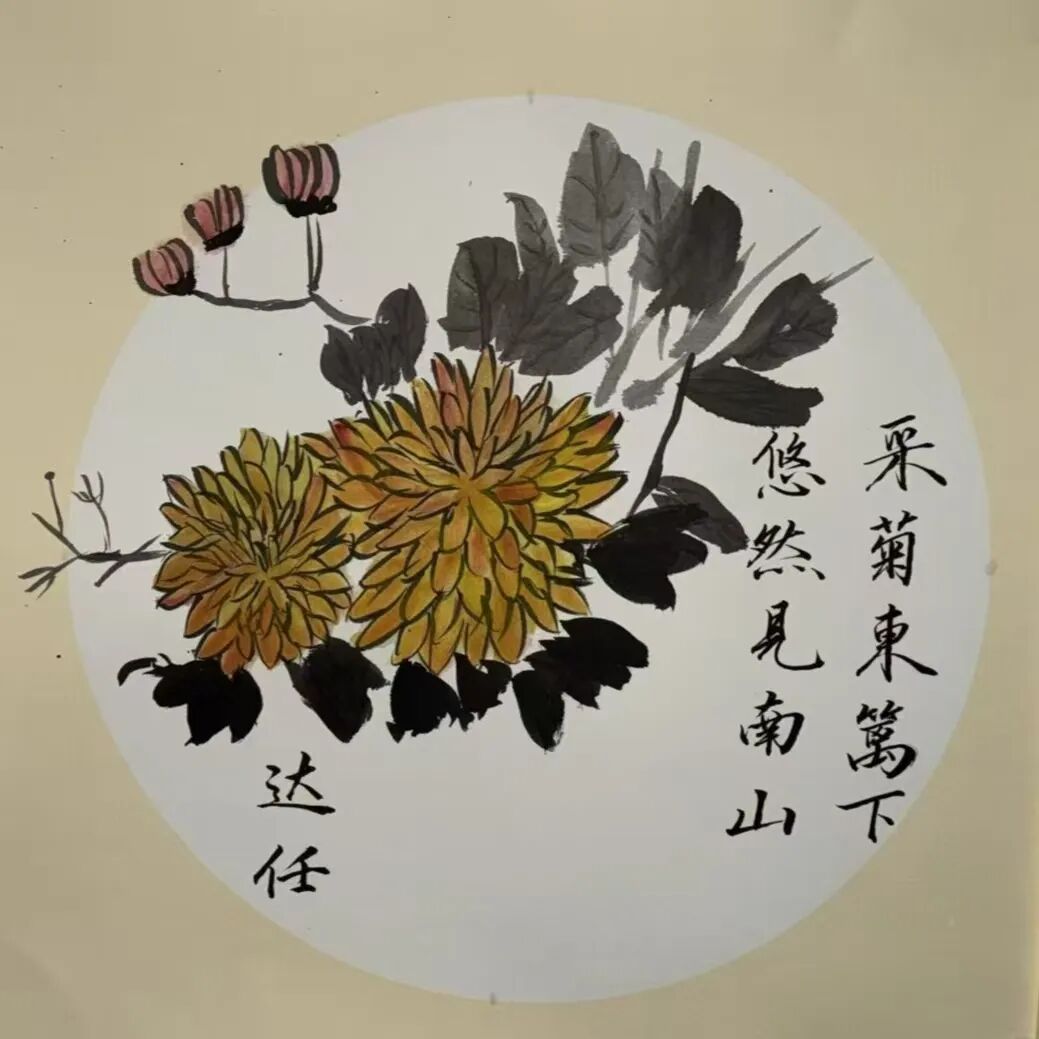 采菊東篱下
悠然見南山
达任